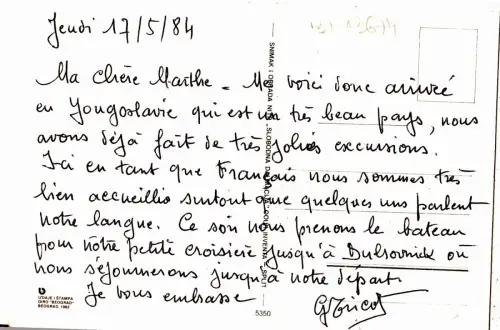 Jeudi 17/5/84
Ma chère Marthe - Me voici donc arrivée
en Yougoslavie qui est un très beau pays, nous
avons déjà fait de très jolies excursions.
Ici en tant que Français nous sommes très
bien accueillis surtout que quelques uns parlent
notre langue. Ce soir nous prenons le bateau
pour notre petite croisière jusqu'à Dubrovnick où
nous séjournerons jusqu'à notre départ
Je vous embrasse
G Tricot
IZDAJE I ŠTAMPA
GIRO "BEOGRAD"
BEOGRAD, 1982
5350
SNIMAK I OBRADA